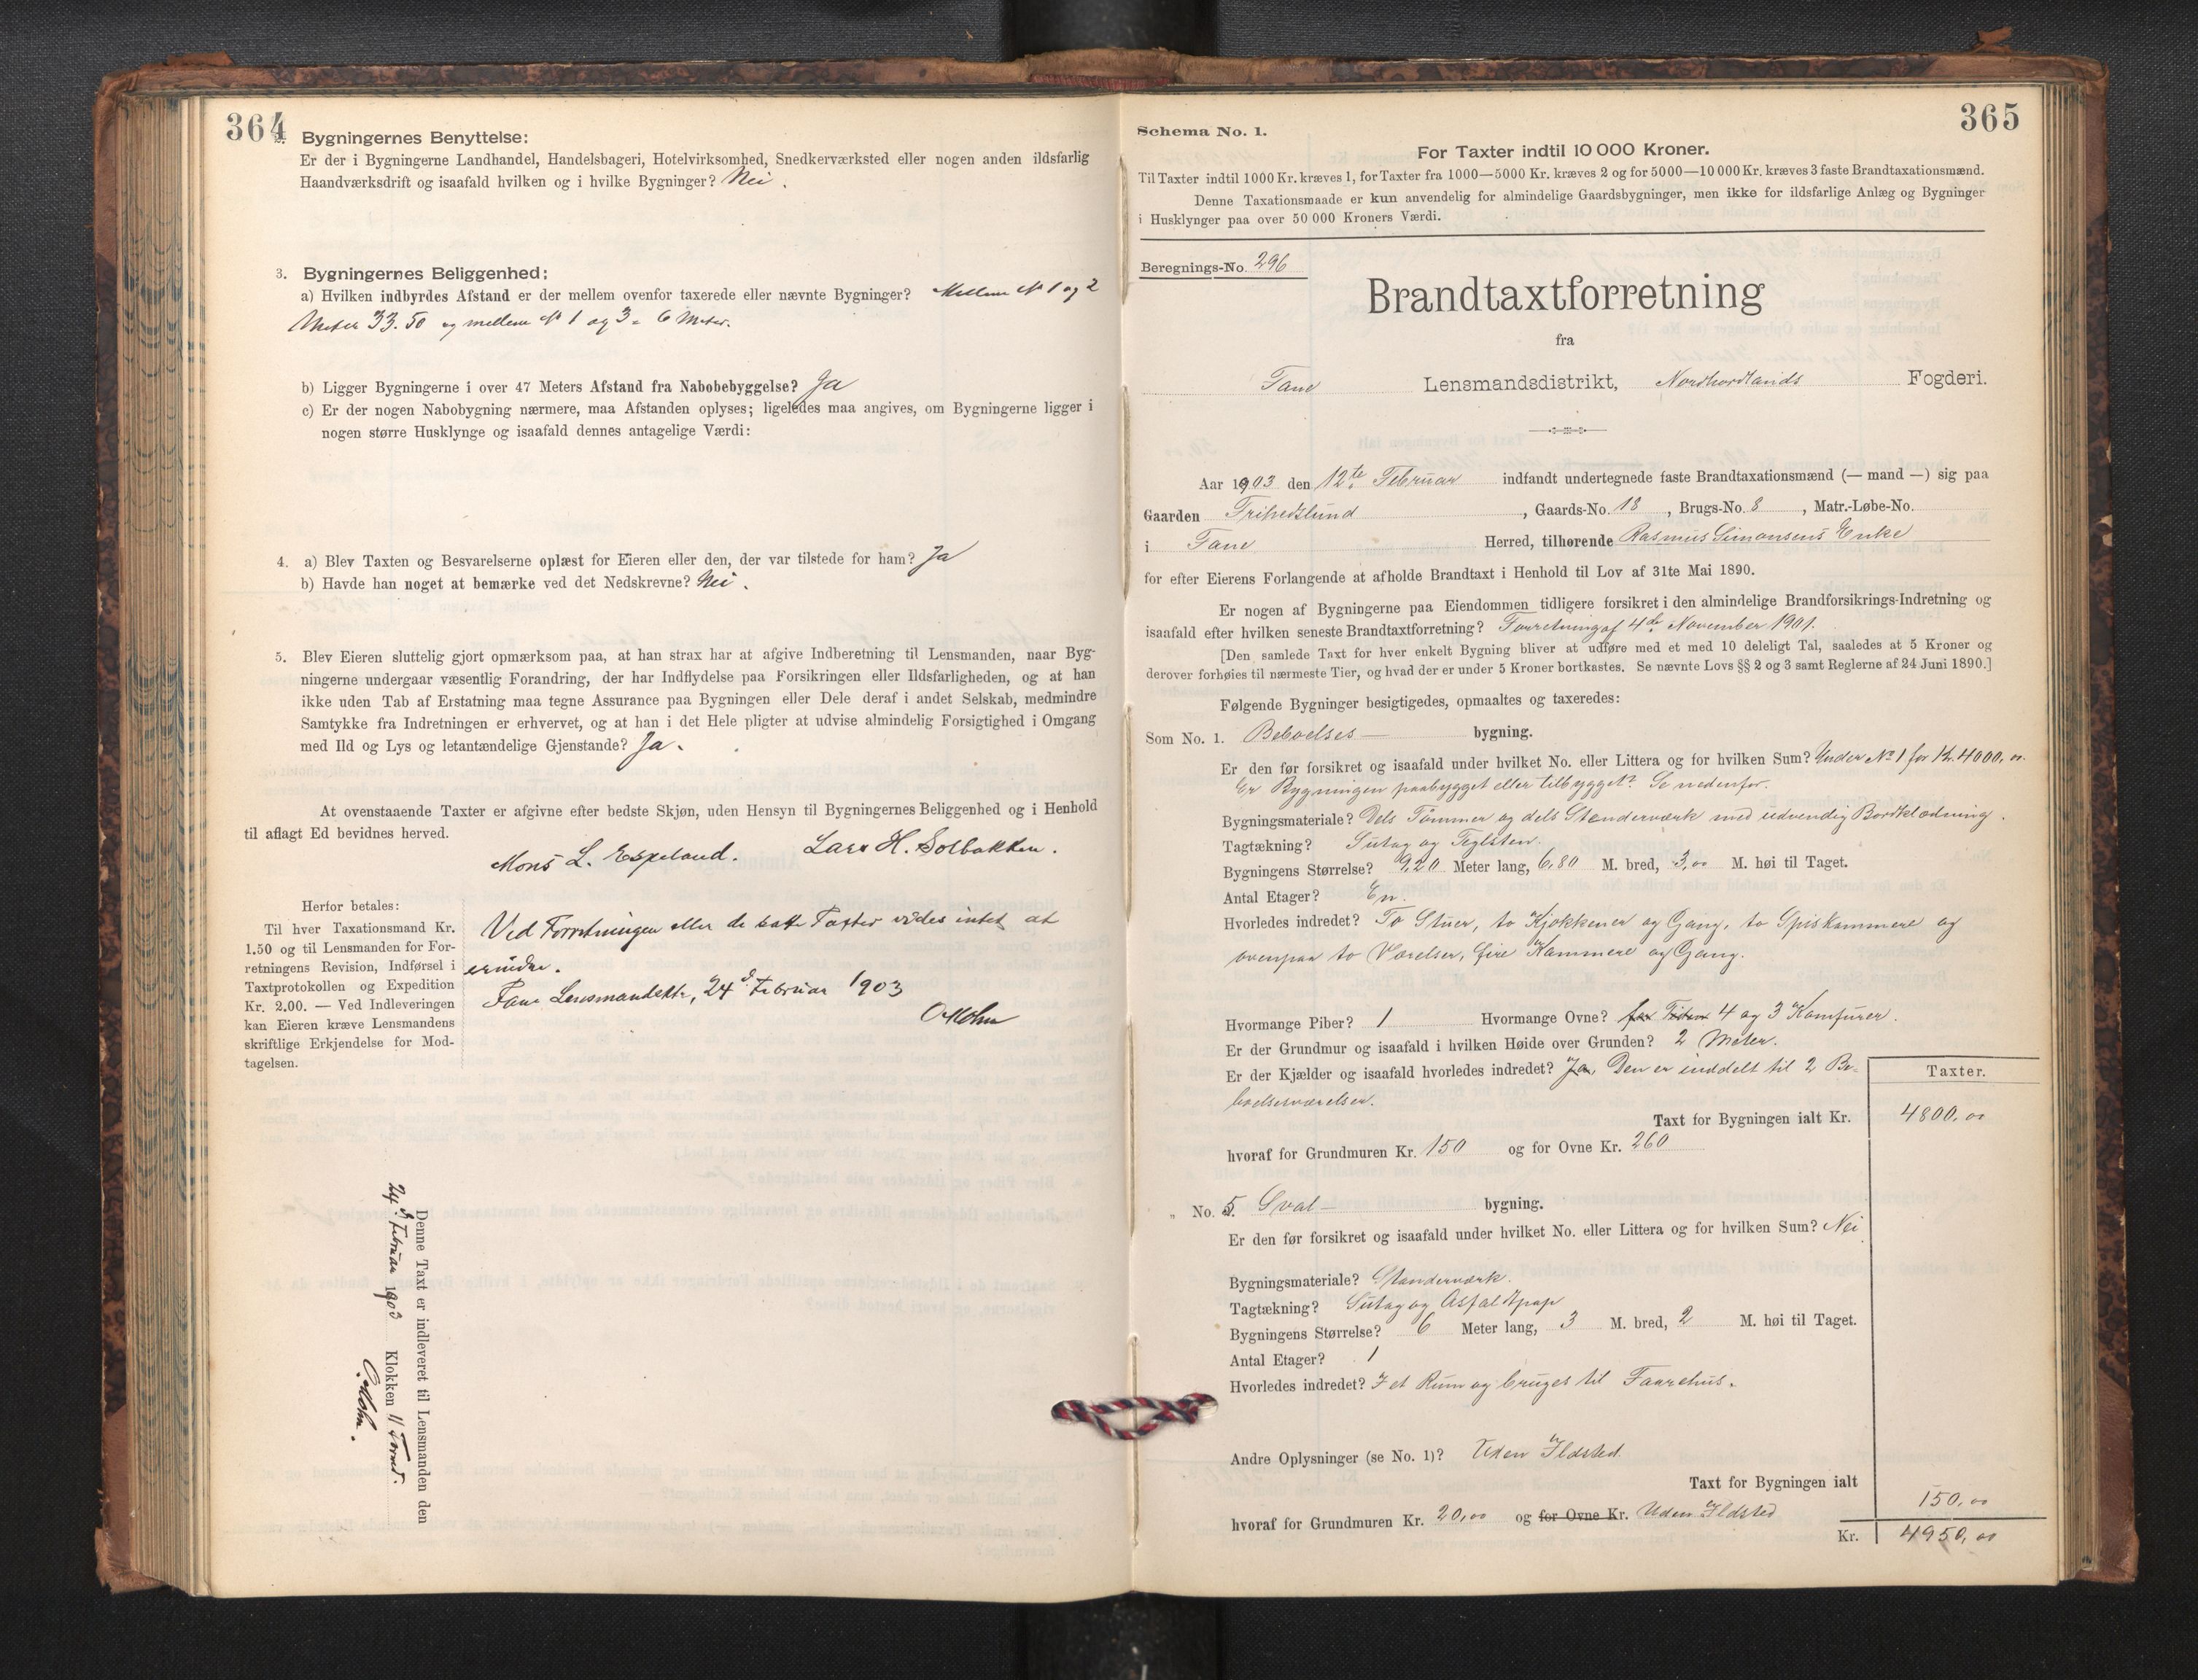 364
2. Bygningernes Benyttelse:
Er der i Bygningerne Landhandel, Handelsbageri, Hotelvirksomhed, Snedkerværksted eller nogen anden ildsfarlig
Haandværksdrift og isaafald hvilken og i hvilke Bygninger? Nei.
3. Bygningernes Beliggenhed:
a) Hvilken indbyrdes Afstand er der mellem ovenfor taxerede eller nævnte Bygninger? Mellem No 1 og 2
Meter 33.50 og mellem No 1 og 3 = 6 Meter.
b) Ligger Bygningerne i over 47 Meters Afstand fra Nabobebyggelse? Ja
c) Er der nogen Nabobygning nærmere, maa Afstanden oplyses; ligeledes maa angives, om Bygningerne ligger i
nogen større Husklynge og isaafald dennes antagelige Værdi:
4. a) Blev Taxten og Besvarelserne oplæst for Eieren eller den, der var tilstede for ham? Ja
b) Havde han noget at bemærke ved det Nedskrevne? Nei.
5. Blev Eieren sluttelig gjort opmærksom paa, at han strax har at afgive Indberetning til Lensmanden, naar Byg-
ningerne undergaar væsentlig Forandring, der har Indflydelse paa Forsikringen eller Ildsfarligheden, og at han
ikke uden Tab af Erstatning maa tegne Assurance paa Bygningen eller Dele deraf i andet Selskab, medmindre
Samtykke fra Indretningen er erhvervet, og at han i det Hele pligter at udvise almindelig Forsigtighed i Omgang
med Ild og Lys og letantændelige Gjenstande? Ja.
At ovenstaaende Taxter er afgivne efter bedste Skjøn, uden Hensyn til Bygningernes Beliggenhed og i Henhold
til aflagt Ed bevidnes herved.
Mons L. Espeland. Lars H. Solbakken.
Herfor betales:
Til hver Taxationsmand Kr.
1.50 og til Lensmanden for For-
retningens Revision, Indførsel i
Taxtprotokollen og Expedition
Kr. 2.00. — Ved Indleveringen
kan Eieren kræve Lensmandens
skriftlige Erkjendelse for Mod-
tagelsen.
Ved Forretningen eller de satte Taxter vides intet at
erindre.
Fane Lensmandsktr, 24d Februar 1903
O Mohn
Denne Taxt er indleveret til Lensmanden den
24d Februar 1903 Klokken 11 Formd.
O. Mohn.
365
Schema No. 1.
For Taxter indtil 10 000 Kroner.
Til Taxter indtil 1000 Kr. kræves 1, for Taxter fra 1000—5000 Kr. kræves 2 og for 5000—10 000 Kr. kræves 3 faste Brandtaxationsmænd.
Denne Taxationsmaade er kun anvendelig for almindelige Gaardsbygninger, men ikke for ildsfarlige Anlæg og Bygninger
i Husklynger paa over 50 000 Kroners Værdi.
Beregnings-No. 296
Brandtaxtforretning
fra
Fane Lensmandsdistrikt, Nordhordlands Fogderi.
Aar 1903 den 12te Februar indfandt undertegnede faste Brandtaxationsmænd (— mand —) sig paa
Gaarden Fripedslund, Gaards-No. 18, Brugs-No. 8, Matr.-Løbe-No.
i Fane Herred, tilhørende Rasmus Simonsens Enke
for efter Eierens Forlangende at afholde Brandtaxt i Henhold til Lov af 31te Mai 1890.
Er nogen af Bygningerne paa Eiendommen tidligere forsikret i den almindelige Brandforsikrings-Indretning og
isaafald efter hvilken seneste Brandtaxtforretning? Forretning af 4de November 1901.
[Den samlede Taxt for hver enkelt Bygning bliver at udføre med et med 10 deleligt Tal, saaledes at 5 Kroner og
derover forhøies til nærmeste Tier, og hvad der er under 5 Kroner bortkastes. Se nævnte Lovs §§ 2 og 3 samt Reglerne af 24 Juni 1890.]
Følgende Bygninger besigtigedes, opmaaltes og taxeredes:
Som No. 1. Beboelses— bygning.
Er den før forsikret og isaafald under hvilket No. eller Littera og for hvilken Sum? Under No 1 for Kr. 4000,00.
Er Bygningen paabygget eller tilbygget? Se nedenfor.
Bygningsmateriale? Dels Tømmer og dels Stenderværk med udvendig Bordklædning.
Tagtækning? Sutag og Teglsten.
Bygningens Størrelse? 9,20 Meter lang, 6,80 M. bred, 3,00 M. høi til Taget.
Antal Etager? En.
Hvorledes indredet? To Stuer, to Kjøkkener og Gang, to Spiskammere og
ovenpaa to Værelser, fire Kammere og Gang.
Hvormange Piber? 1 Hvormange Ovne? 4 og 3 Komfurer.
Er der Grundmur og isaafald i hvilken Høide over Grunden? 2 Meter.
Er der Kjælder og isaafald hvorledes indredet? Ja, Den er inddelt til 2 Be-
boelsesværelser.
Taxter.
Taxt for Bygningen ialt Kr. 4800,00
hvoraf for Grundmuren Kr. 150 og for Ovne Kr. 260
„ No. 5. Sval— bygning.
Er den før forsikret og isaafald under hvilket No. eller Littera og for hvilken Sum? Nei
Bygningsmateriale? Stenderværk.
Tagtækning? Sutag og Asfaltpap
Bygningens Størrelse? 6 Meter lang, 3 M. bred, 2 M. høi til Taget.
Antal Etager? 1
Hvorledes indredet? I et Rum og bruges til Faarehus.
Andre Oplysninger (se No. 1)? Uden Ildsted.
Taxt for Bygningen ialt 150,00
hvoraf for Grundmuren Kr. 20,00 og for Ovne Kr. Uden Ildsted
Kr. 4950,00